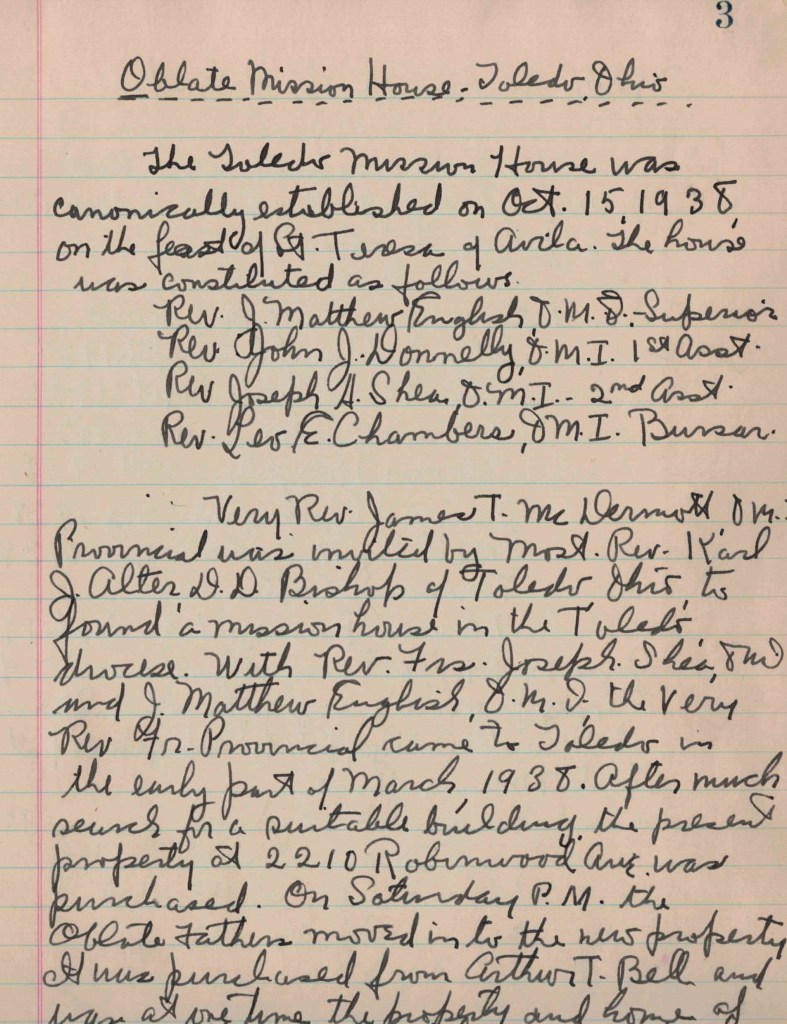 3
Oblate Mission House - Toledo, Ohio
The Toledo Mission House was
canonically established on Oct. 15, 1938,
on the feast of St. Teresa of Avila. The house
was constituted as follows.
Rev. J. Matthew English, O.M.I. - Superior
Rev. John J. Donnelly, O.M.I. 1st Asst.
Rev Joseph H. Shea, O.M.I. - 2nd Asst.
Rev. Leo E. Chambers, O M.I. Bursar.
Very Rev. James T. McDermott O M.I.
Provincial was invited by Most. Rev. Karl
J. Alter, D.D. Bishop of Toledo Ohio, to
found a mission house in the Toledo
diocese. With Rev. Frs. Joseph. Shea, OMI
and J. Matthew English, O.M.I, the Very
Rev Fr. Provincial came to Toledo in
the early part of March, 1938. After much
search for a suitable building, the present
property at 2210 Robinwood Ave. was
purchased. On Saturday P.M. the
Oblate Fathers moved in to the new property
It was purchased from Arthur T. Bell and
was at one time the property and home of